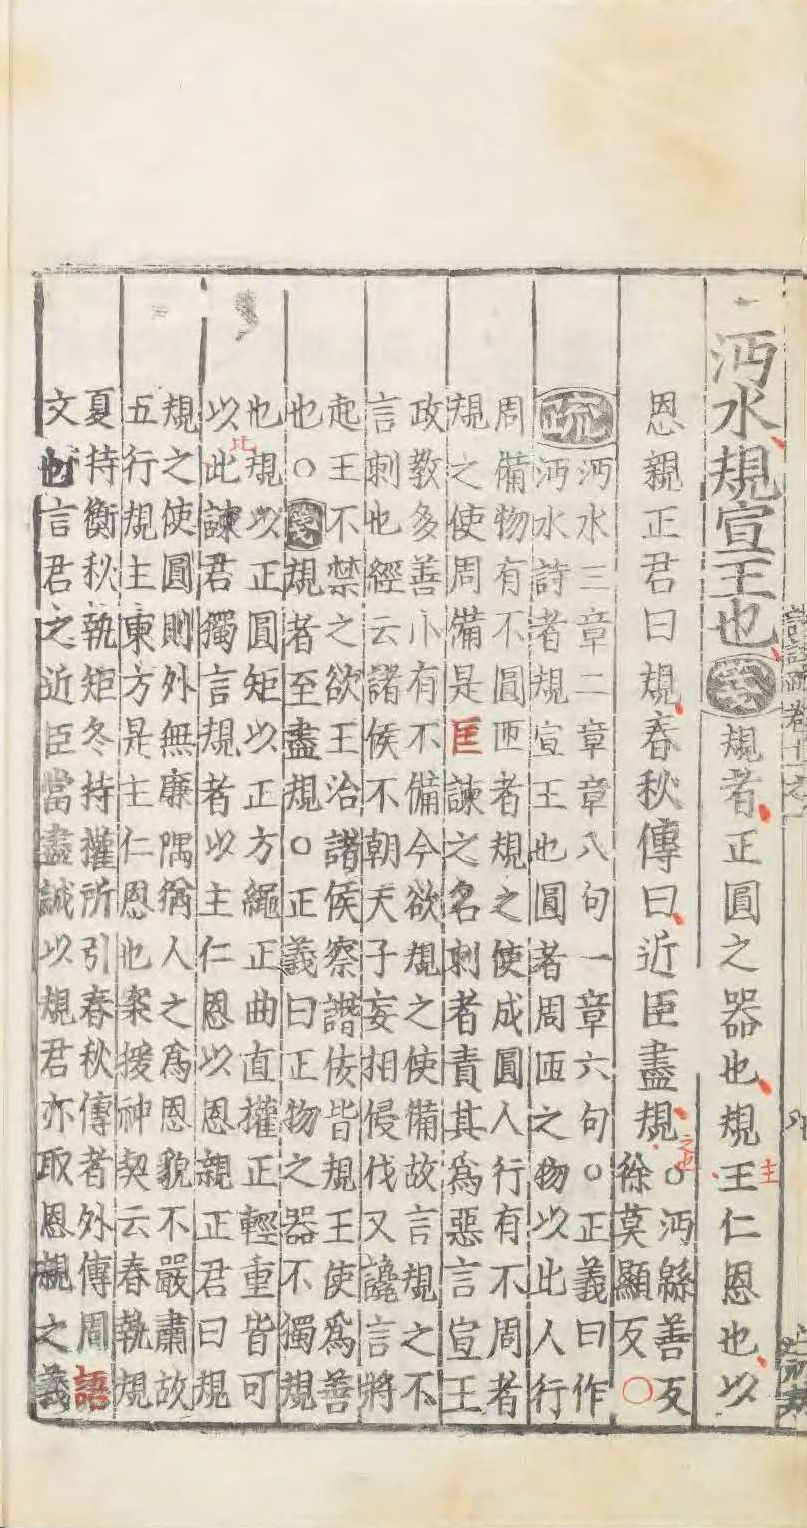 沔水規宣王也箋規者正圓之器也規王仁恩也以
主
恩親正君曰規春秋傳曰近臣盡規○沔緜善反
徐莫顯反○
疏沔水三章二章章八句一章六句○正義曰作
沔水詩者規宣王也圓者周匝之物以此人行
周備物有不圓匝者規之使成圓人行有不周者
規之使周備是匡諫之名刺者責其爲惡言宣王
政教多善小有不備今欲規之使備故言規之不
言刺也經云諸侯不朝天子妄相侵伐又讒言將
起王不禁之欲王治諸侯察譖佞皆規王使爲善
也○箋規者至盡規○正義曰正物之器不獨規
也規以正圓矩以正方繩正曲直權正輕重皆可
以此諫君獨言規者以主仁恩以恩親正君曰規
比
規之使圓則外無廉隅猶人之爲恩貌不嚴肅故
五行規主東方是主仁恩也案援神契云春執規
夏持衡秋執矩冬持權所引春秋傳者外傳周語
文也言君之近臣當盡誠以規君亦取恩親之義